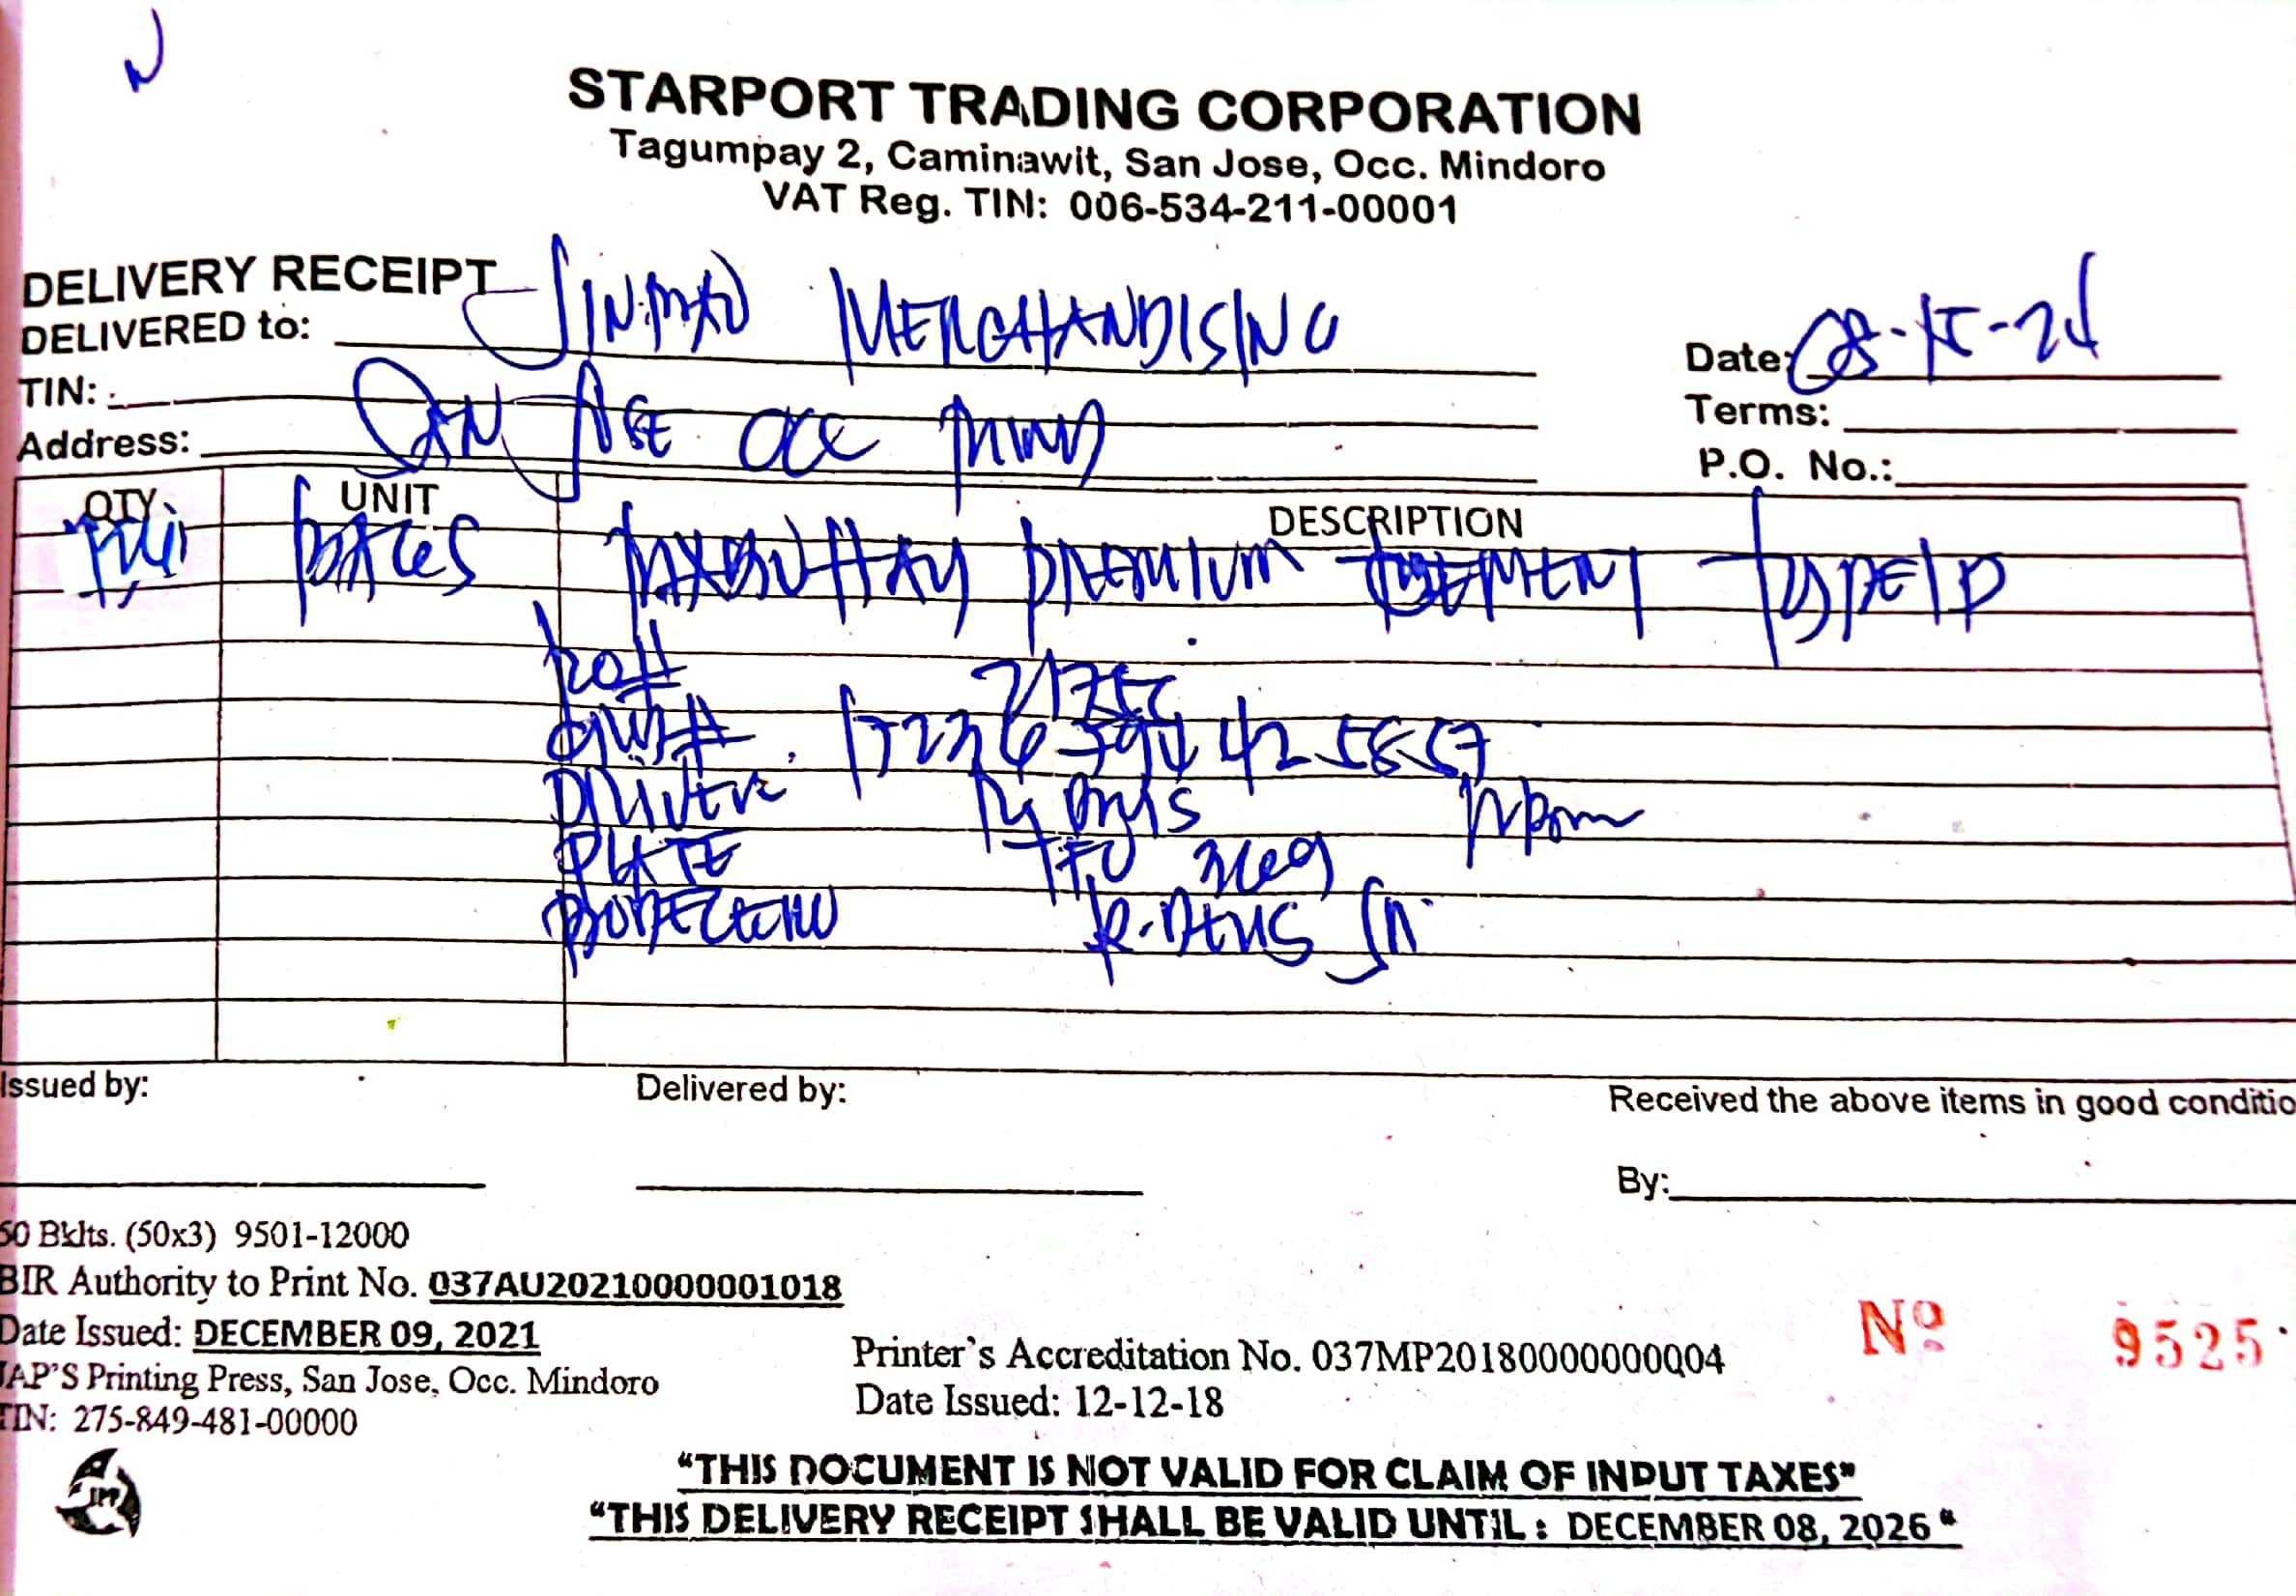 STARPORT TRADING CORPORATION
Tagumpay 2, Caminawit, San Jose, Occ. Mindoro
VAT Reg. TIN: 006-534-211-00001
DELIVERY RECEIPT
DELIVERED to: MERCHANDISING
Date: 08-15-24
TIN:
Terms:
Address: SAN JOSE OCC
P.O. No.:
QTY. UNIT DESCRIPTION
PREMIUM CEMENT TYPE 1P
DRIVER
PLATE
Issued by: Delivered by: Received the above items in good conditio
By:
50 Bklts. (50x3) 9501-12000
BIR Authority to Print No. 037AU20210000001018
Date Issued: DECEMBER 09, 2021
JAP'S Printing Press, San Jose, Occ. Mindoro
TIN: 275-849-481-00000
Printer's Accreditation No. 037MP20180000000004
Date Issued: 12-12-18
Nº 9525
JPP
"THIS DOCUMENT IS NOT VALID FOR CLAIM OF INPUT TAXES"
"THIS DELIVERY RECEIPT SHALL BE VALID UNTIL : DECEMBER 08, 2026"